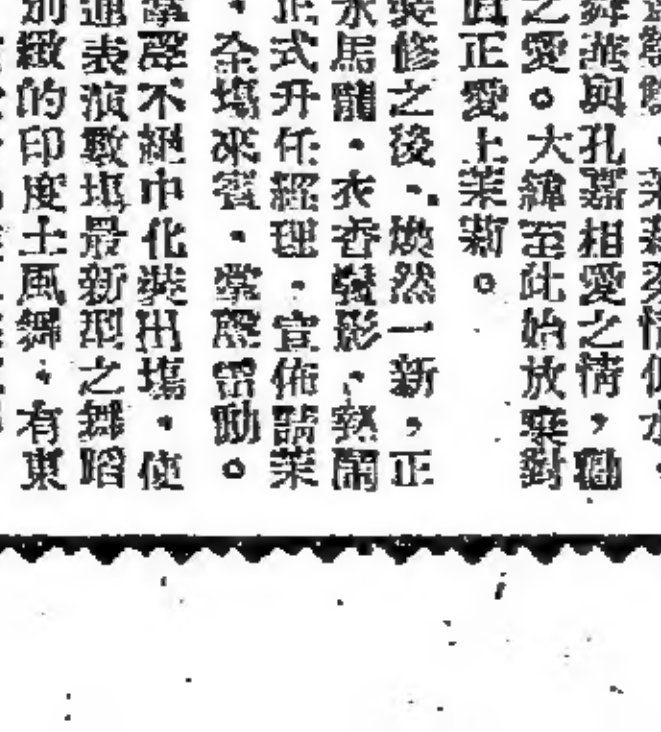 舞燕與孔嘉相愛之情，勸
之愛。大緯至此始放棄對
眞正愛上茉莉。
裝修之後，煥然一新，正
水馬龍．衣香鬢影，熱鬧
正式升任經理．宣佈請茉
。全塲來賓．掌聲雷動。
掌聲不絕中化裝出塲．使
通表演數塲最新型之舞蹈
別緻的印度土風舞．有東